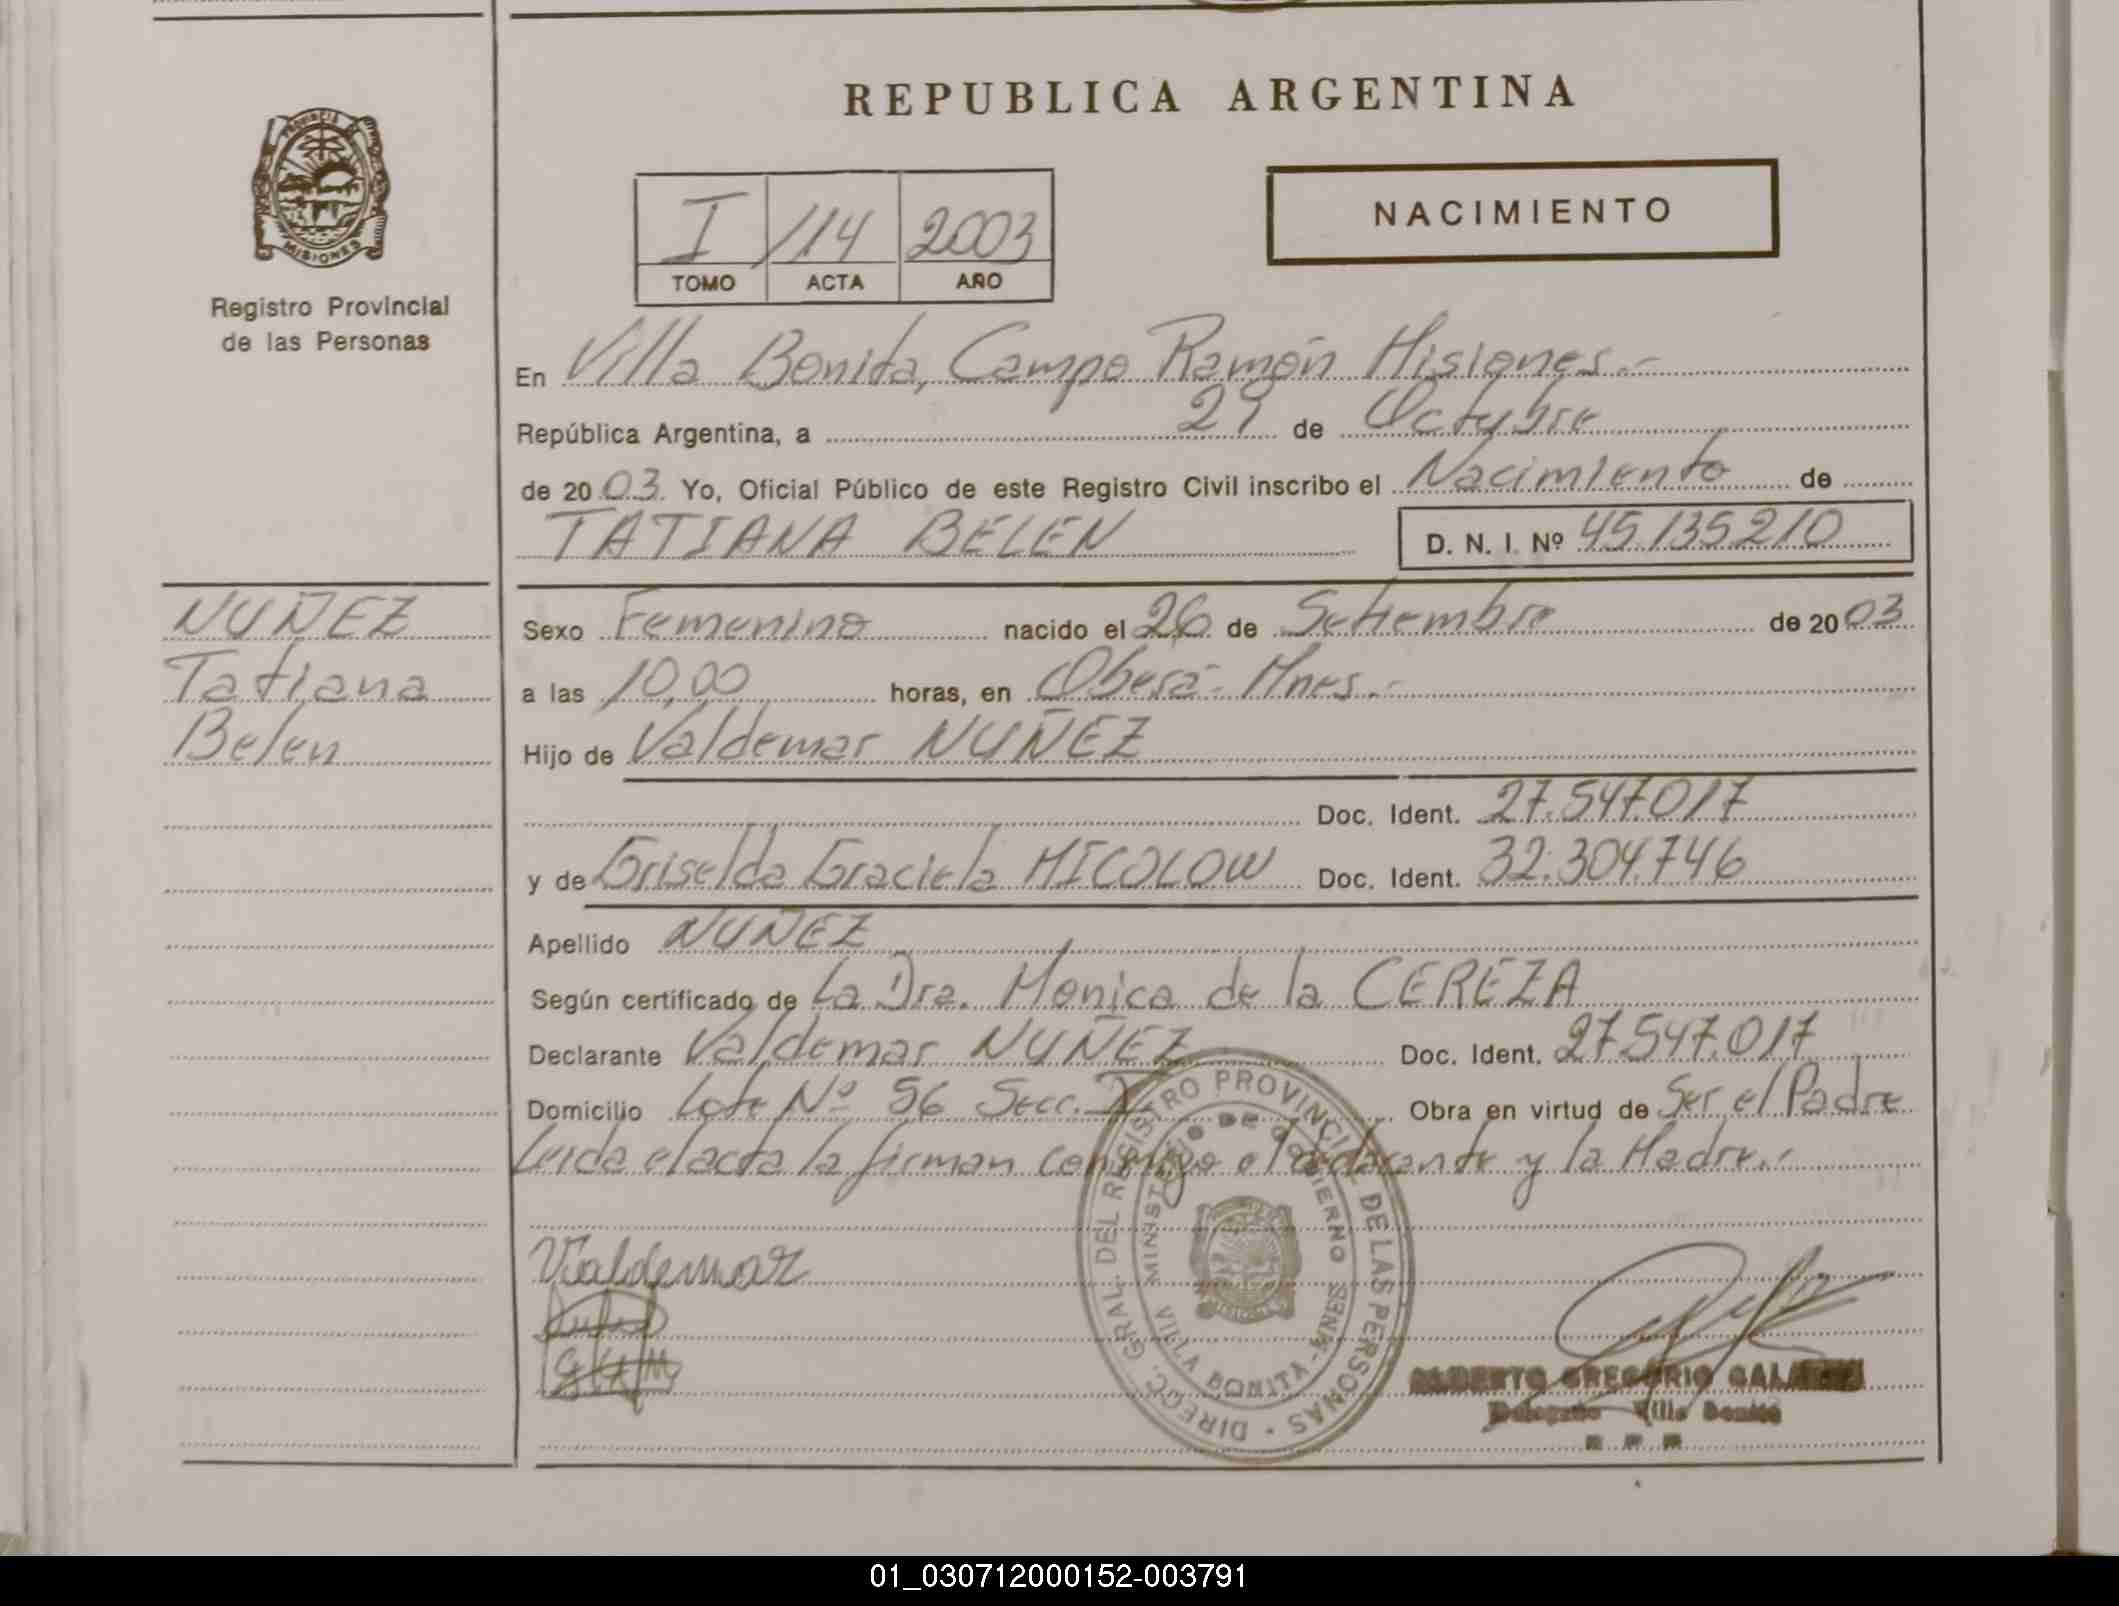 REPUBLICA ARGENTINA
PROVINCIA DE MISIONES
Registro Provincial
de las Personas
I 114 2003
TOMO ACTA AÑO
NACIMIENTO
En Villa Bonita, Campo Ramón Misiones.-
República Argentina, a 29 de Octubre
de 2003. Yo, Oficial Público de este Registro Civil inscribo el Nacimiento de
TATIANA BELEN D. N. I. Nº 45.135.210
NUÑEZ
Tatiana
Belen
Sexo Femenino nacido el 26 de Setiembre de 2003
a las 10,00 horas, en Oberá - Mnes.-
Hijo de Valdemar NUÑEZ
Doc. Ident. 27.547.017
y de Griselda Graciela MICOLOW Doc. Ident. 32.304.746
Apellido NUÑEZ
Según certificado de La Dra. Monica de la CEREZA
Declarante Valdemar NUÑEZ Doc. Ident. 27.547.017
Domicilio Lote Nº 56 Secc. Obra en virtud de Ser el Padre
Leida el acta la firman conmigo el declarante y la Madre.-
Valdemar
DIRECC. GRAL. DEL REGISTRO PROVINCIAL DE LAS PERSONAS
MINISTERIO DE GOBIERNO
VILLA BONITA - MNES
ALBERTO GREGORIO
Delegado Villa Bonita
01_030712000152-003791